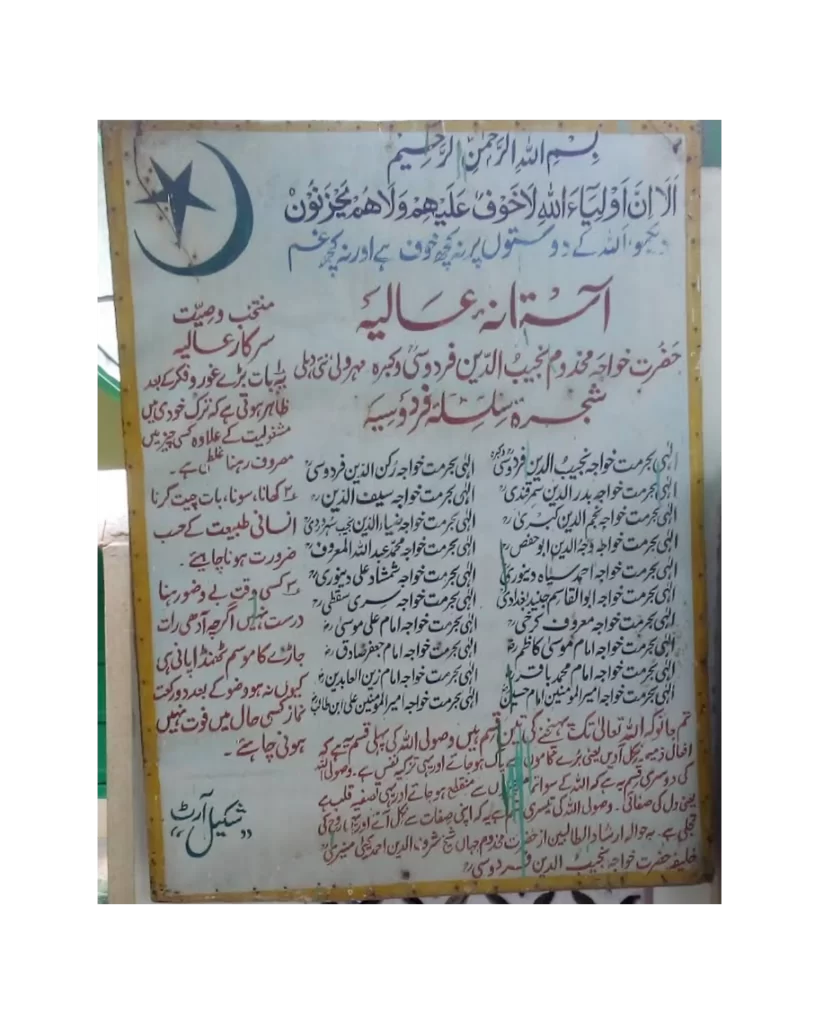 بِسْمِ اللهِ الرَّحْمٰنِ الرَّحِيْمِ
اَلَا اِنَّ اَوْلِيَآءَ اللهِ لَا خَوْفٌ عَلَيْهِمْ وَلَا هُمْ يَحْزَنُوْنَ
دیکھو اللہ کے دوستوں پر نہ کچھ خوف ہے اور نہ کچھ غم
آستانہ عالیہ
حضرت خواجہ مخدوم نجیب الدّین فردوسیؒ وکبرہ مہرولی نئی دہلی
شجرۂ سِلسِلۂ فردَوسیہ
الٰہی بحرمت خواجہ نجیب الدین فردوسیؒ
الٰہی بحرمت خواجہ رکن الدّین فردوسیؒ
الٰہی بحرمت خواجہ بدر الدین سمرقندیؒ
الٰہی بحرمت خواجہ سیف الدّینؒ
الٰہی بحرمت خواجہ نجم الدین کبریٰؒ
الٰہی بحرمت خواجہ ضیاء الدّین نجیب سہروردیؒ
الٰہی بحرمت خواجہ وجہ الدین ابو حفصؒ
الٰہی بحرمت خواجہ محمد عبد اللہ المعروفؒ
الٰہی بحرمت خواجہ احمد سیاہ دینوریؒ
الٰہی بحرمت خواجہ شمشاد علی دینوریؒ
الٰہی بحرمت خواجہ ابو القاسم جنید بغدادیؒ
الٰہی بحرمت خواجہ سری سقطیؒ
الٰہی بحرمت خواجہ معروف کرخیؒ
الٰہی بحرمت خواجہ امام علی موسیٰؒ
الٰہی بحرمت خواجہ امام موسیٰ کاظمؒ
الٰہی بحرمت خواجہ امام جعفر صادقؒ
الٰہی بحرمت خواجہ امام محمد باقرؒ
الٰہی بحرمت خواجہ امام زین العابدینؒ
الٰہی بحرمت خواجہ امیر المومنین امام حسینؓ
الٰہی بحرمت خواجہ امیر المؤمنین علی ابن طالبؓ
تم جانو کہ اللہ تعالیٰ تک پہنچنے کی تین قسم ہیں وصولی اللہ کی پہلی قسم یہ ہے کہ
افعال ذمیمہ نکل آدیں یعنی بُرے کاموں سے پاک ہو جاتے اور یہی تزکیہ نفس ہے۔ وصولی اللہ
کی دوسری قسم یہ ہے کہ اللہ کے سوا تمام سے منقطع ہو جاتے اور یہی تصفیہ قلب ہے
یعنی دل کی صفائی۔ وصولی اللہ کی تیسری یہ کہ اپنی صفات سے نکل آتے اور یہ روح کی
تجلّی ہے۔ بہ حوالہ ارشاد الطالبین از حضرت مخدوم جہاں شیخ شرف الدین احمد یحییٰ منیریؒ
خلیفہ حضرت خواجہ نجیب الدین فردوسیؒ
منتخب وصیّت
سرکار عالیہ
۱ یہ بات بڑے غور و فکر کے بعد
ظاہر ہوتی ہے کہ ترک خودی میں
مشغولیت کے علاوہ کسی چیز میں
مصروف رہنا غلطی ہے۔
۲ کھانا، سونا، بات چیت کرنا
انسانی طبیعت کے حسب
ضرورت ہونا چاہئے۔
۳ کسی وقت بے وضو رہنا
درست نہیں اگرچہ آدھی رات
جاڑے کا موسم ٹھنڈا پانی ہی
کیوں نہ ہو وضو کے بعد دو رکعت
نماز کسی حال میں فوت نہیں
ہونی چاہئے۔
شکیل آرٹ